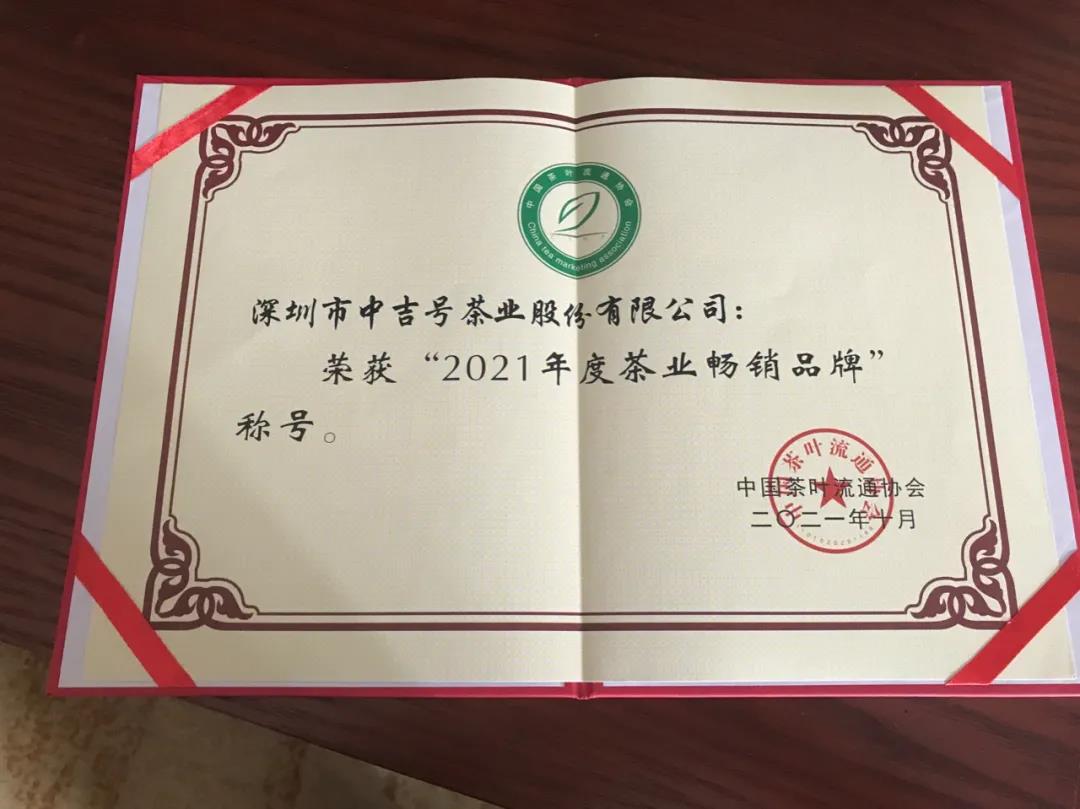 中国茶叶流通协会
China tea marketing association
深圳市中吉号茶业股份有限公司：
荣获“2021年度茶业畅销品牌”
称号。
中国茶叶流通协会
中国茶叶流通协会
二〇二一年十月